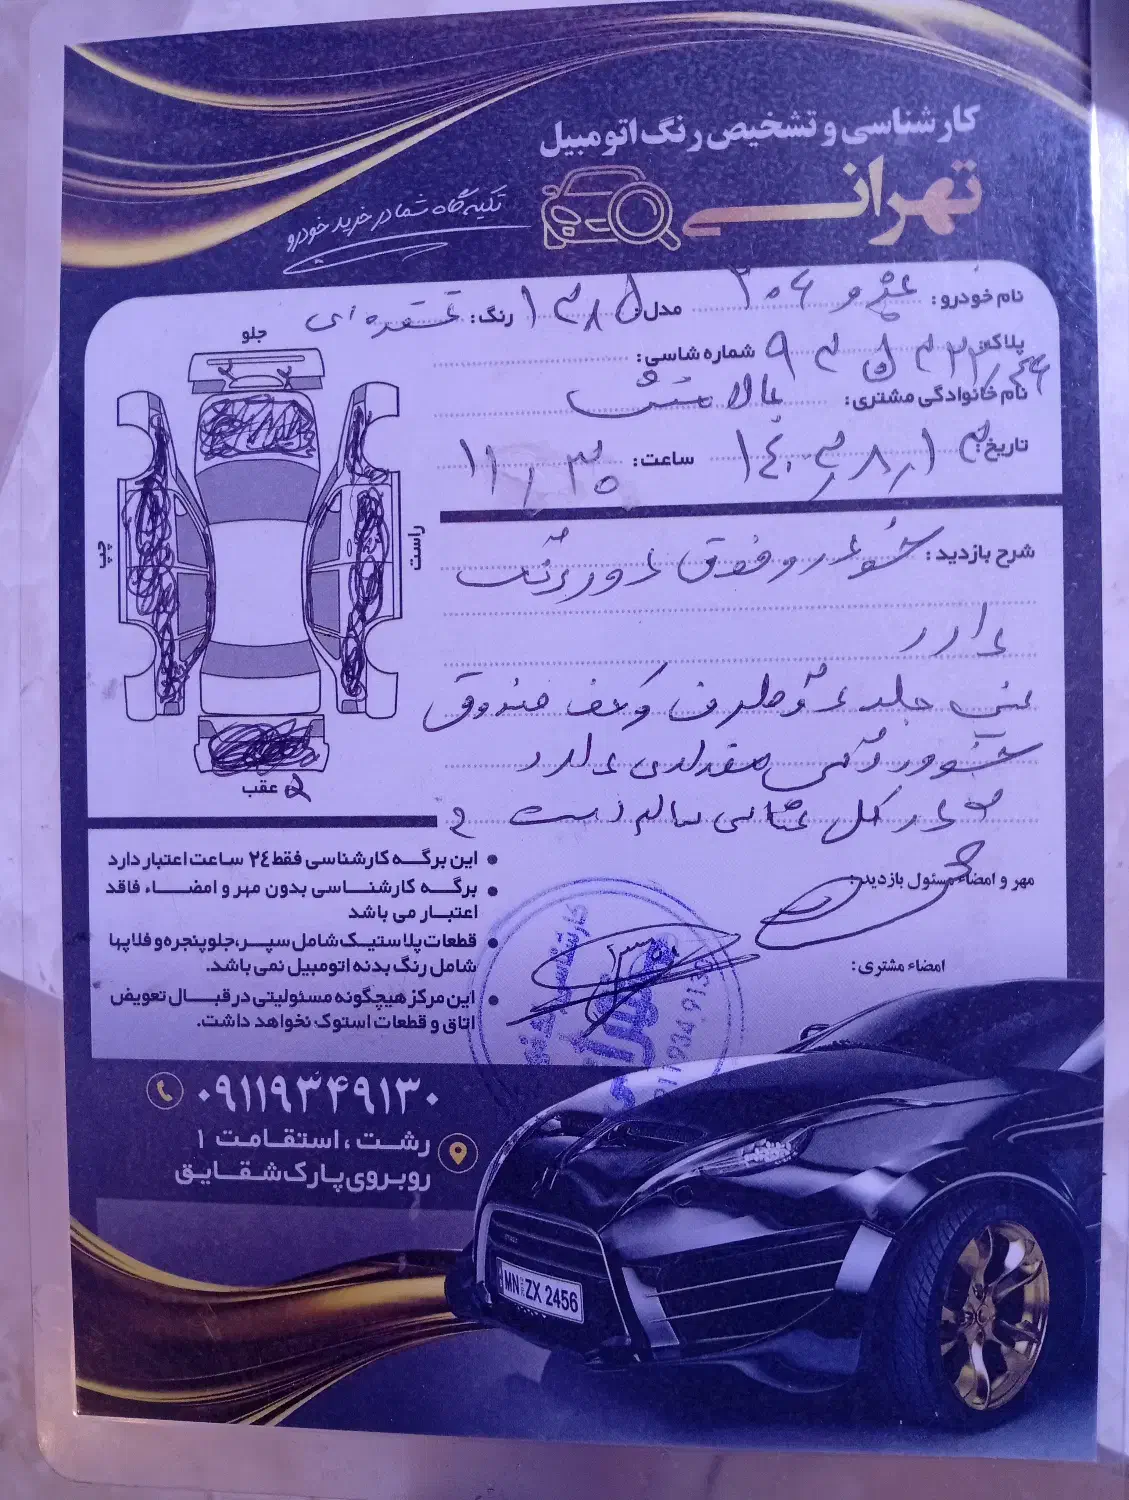 کارشناسی و تشخیص رنگ اتومبیل
تهرانی
تکیه گاه شما در خرید خودرو
نام خودرو: پژو ۲۰۶ مدل: ۱۳۸۵ رنگ: نقره ای
پلاک:
شماره شاسی:
نام خانوادگی مشتری:
تاریخ: ۱۴۰۳/۸/۱۳ ساعت: ۱۱/۳۰
جلو
چپ
راست
عقب
شرح بازدید: خودرو فوق دور رنگ
دارد
سینی جلو دو طرف و کف صندوق
خوردگی مقداری دارد
در کل شاسی سالم است
مهر و امضاء مسئول بازدید:
امضاء مشتری:
این برگه کارشناسی فقط ۲۴ ساعت اعتبار دارد
برگه کارشناسی بدون مهر و امضاء فاقد
اعتبار می باشد
قطعات پلاستیک شامل سپر،جلوپنجره و فلاپها
شامل رنگ بدنه اتومبیل نمی باشد.
این مرکز هیچگونه مسئولیتی در قبال تعویض
اتاق و قطعات استوک نخواهد داشت.
۰۹۱۱۹۳۴۹۱۳۰
رشت ، استقامت ۱
روبروی پارک شقایق
MN ZX 2456